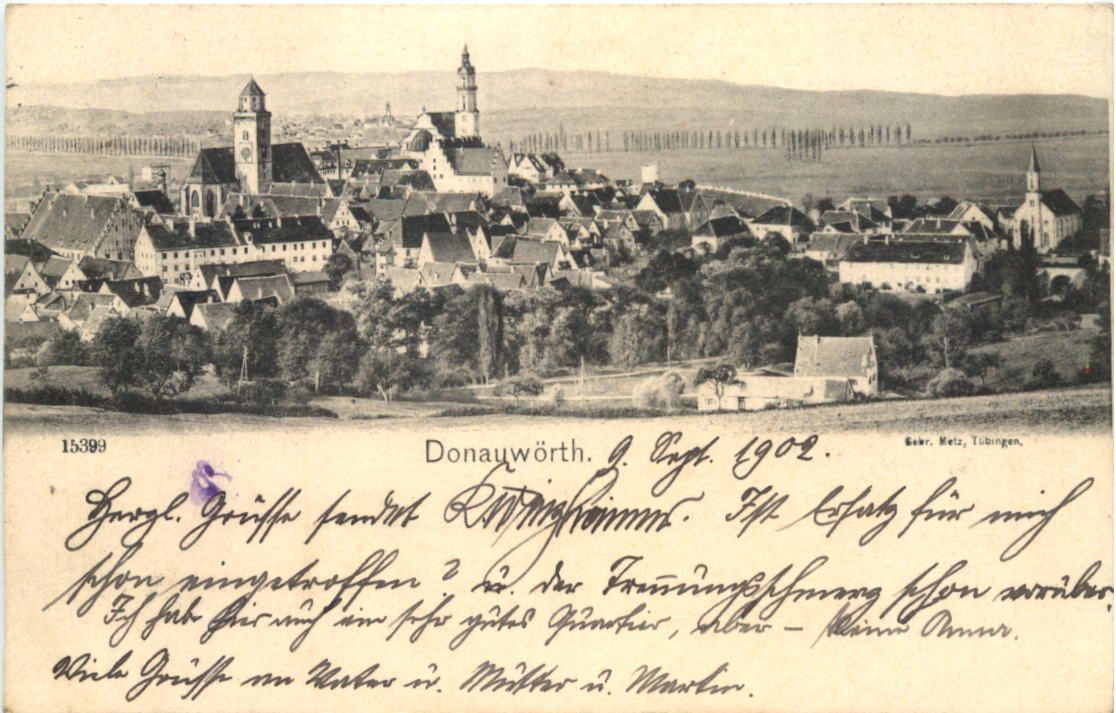 15399
Donauwörth. 9. Sept. 1902.
Gebr. Metz, Tübingen.
Herzl. Grüsse sendet Ist Ersatz für mich
schon eingetroffen? u. der Trennungsschmerz schon vorüber,
Ich hab hier auch ein sehr gutes Quartier, aber – keine Anna.
Viele Grüsse an Vater u. Mutter u. Martin.